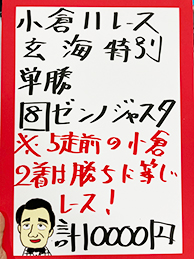 小倉11レース
玄海特別
単勝
8ゼンノジャスタ
※5走前の小倉
2着は勝ちに等しい
レース!
計10000円